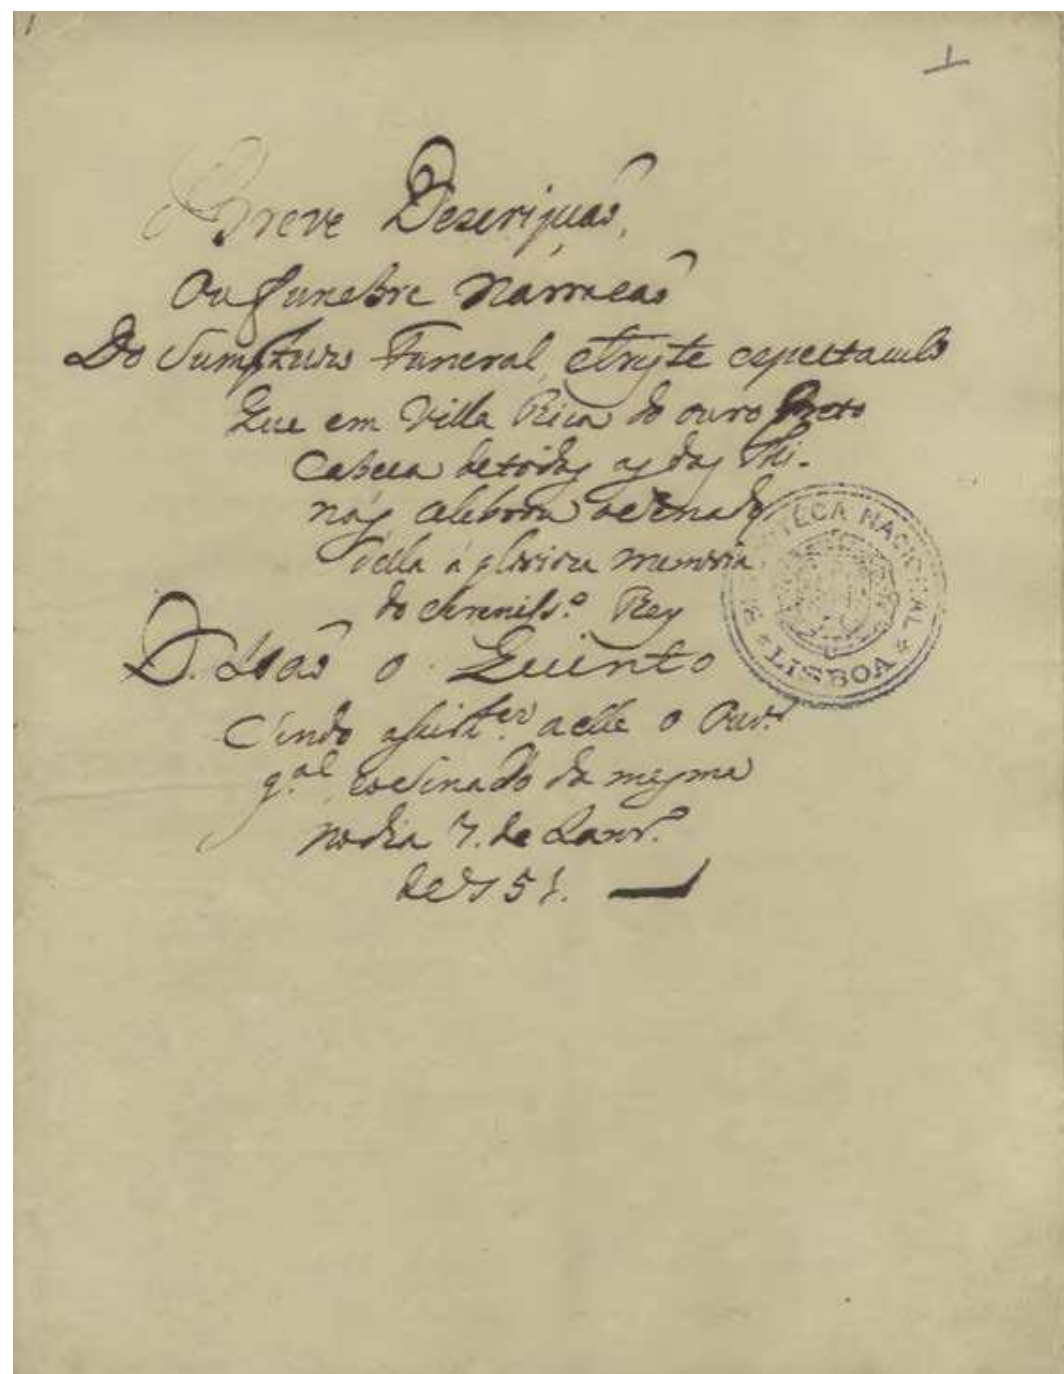 1
1
Breve Descripçaõ,
Ou funebre Narracaõ
Do Sumptuozo Funeral, e tryste espectaculo
Que em Villa Rica do ouro Preto
Cabeca de todas as das Mi-
nas celebrou o Senado
della á glorioza memoria
do Serenis.º Rey
D. Joaõ o Quinto
Sendo a elle o Ouv.ʳ
g.ᵃˡ do mesma
no dia 7. de Janr.º
de 751.
BIBLIOTECA NACIONAL
* LISBOA *